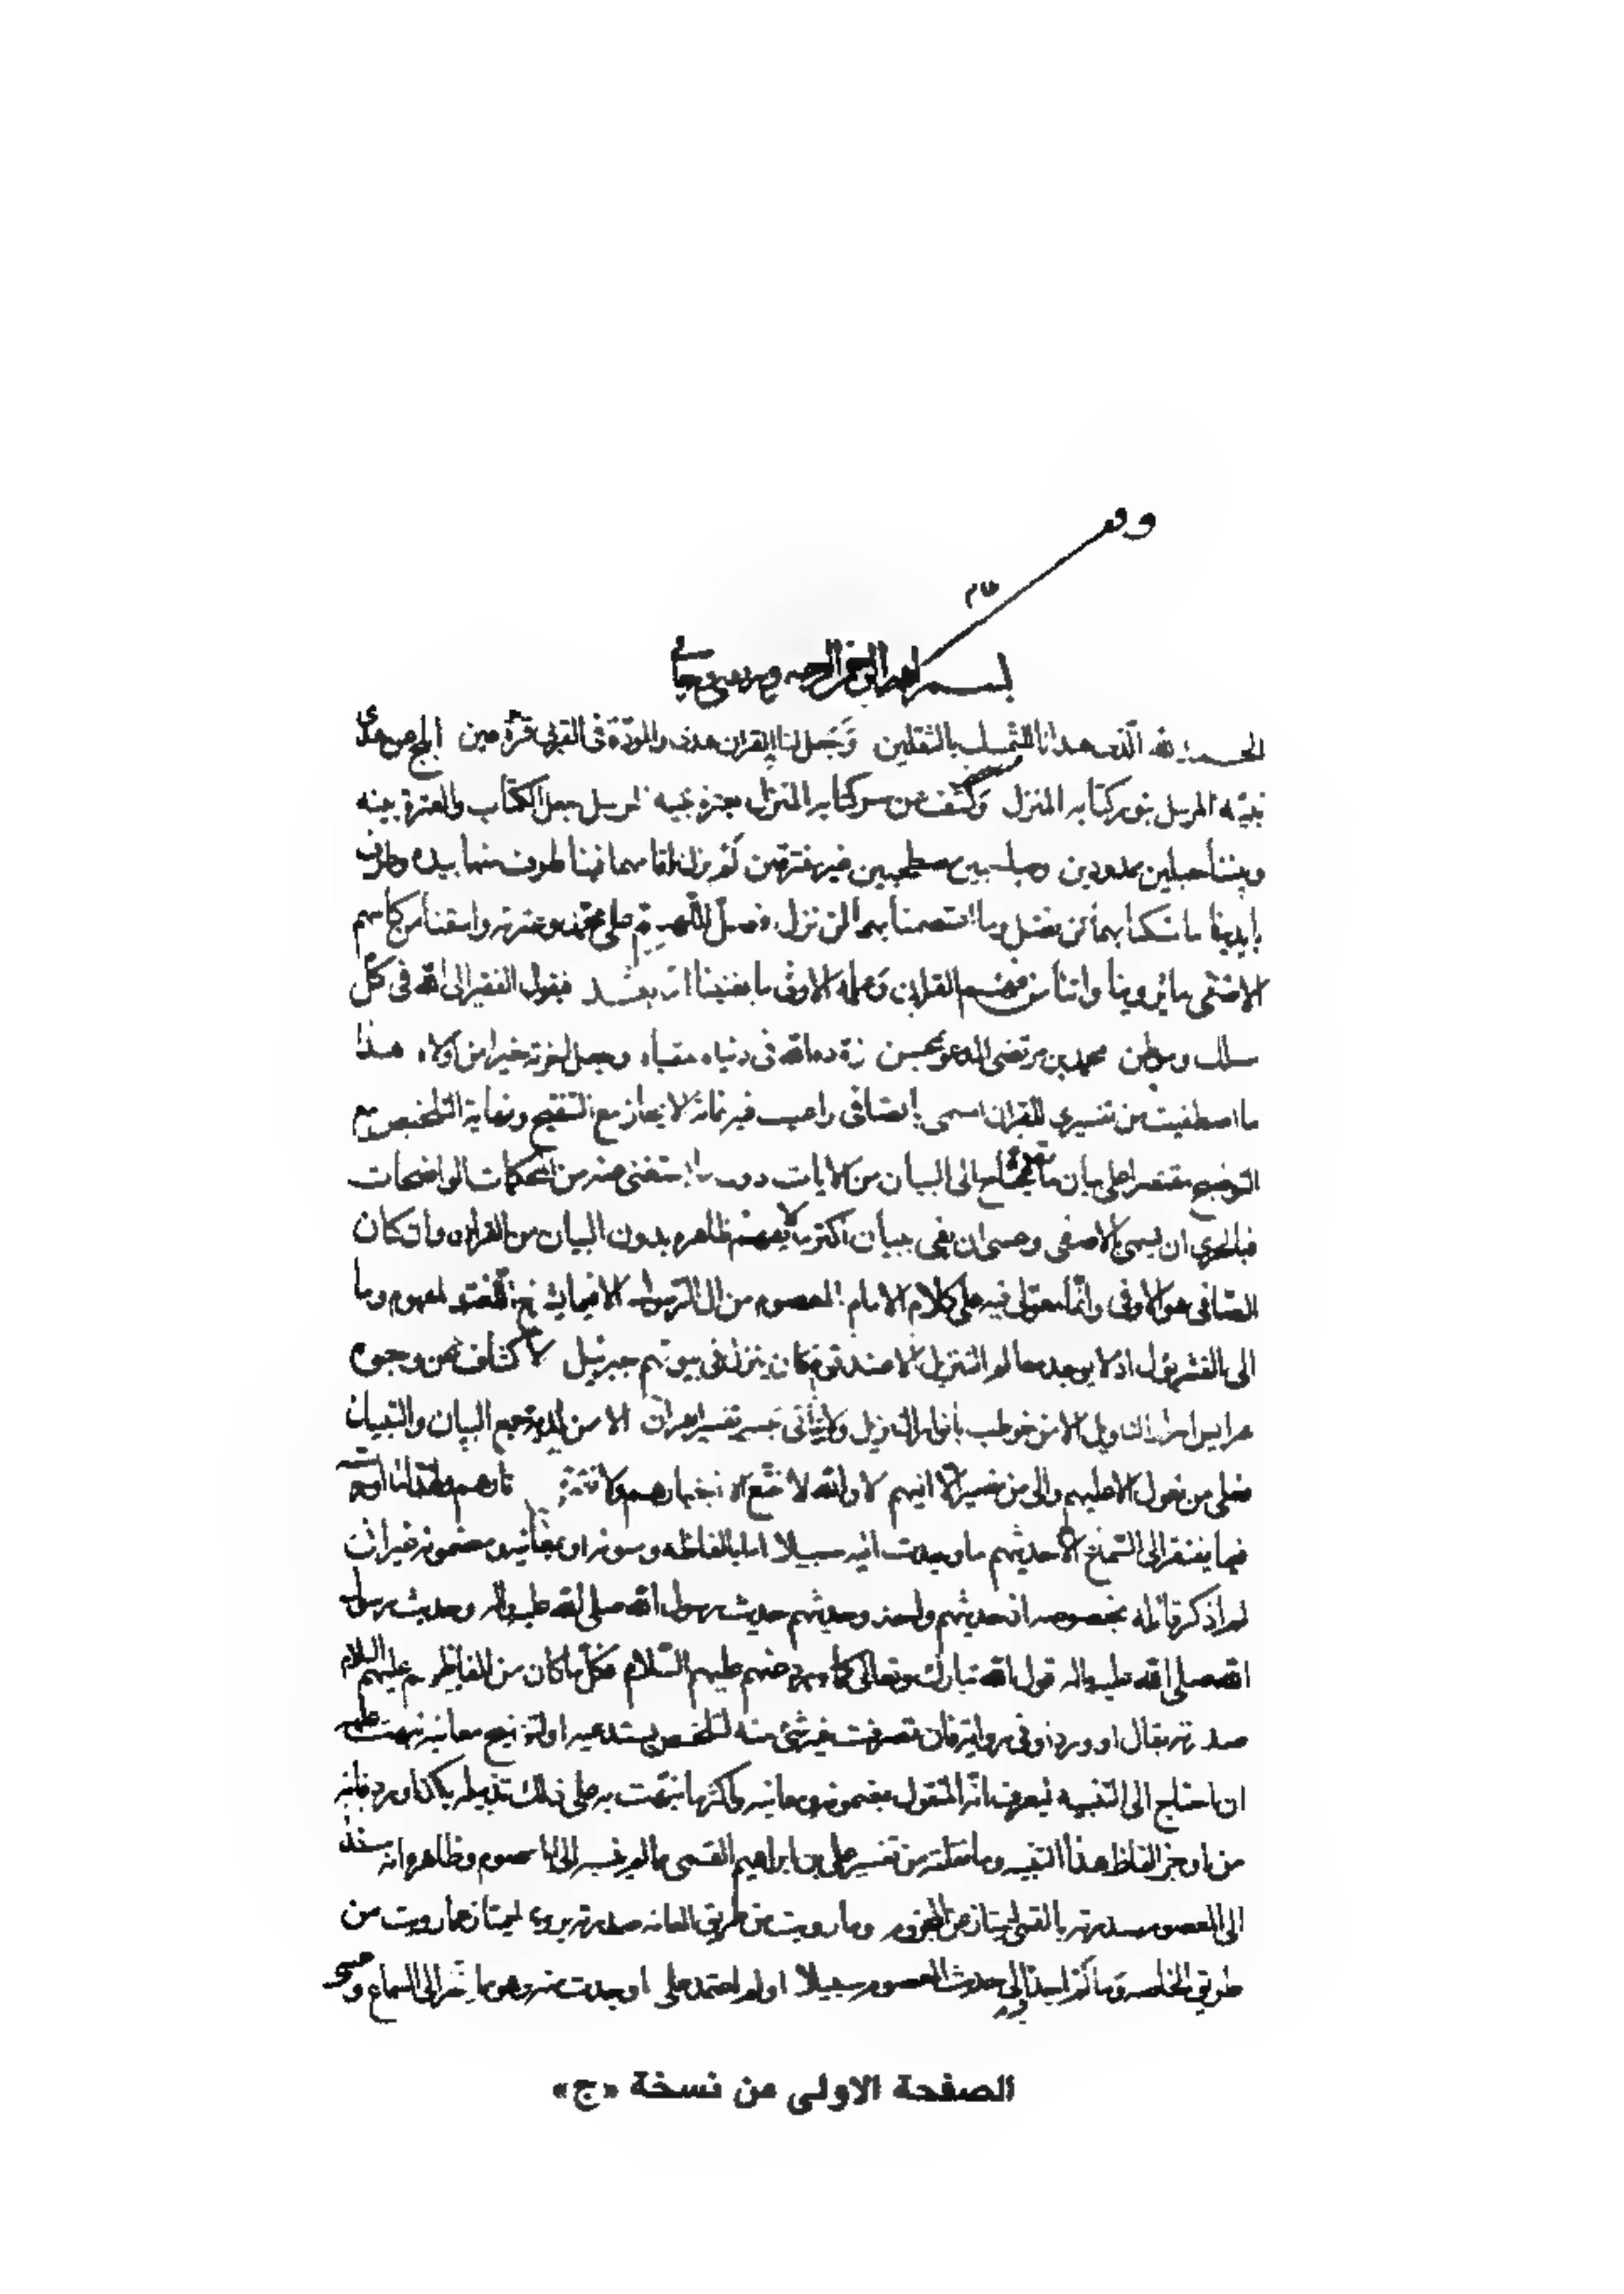 وقف
عام
بسم الله الرحمن الرحيم
الحمد لله الذى هدانا للتمسك بالثقلين وجعل لنا القران هدى والمودة فى القربى قرة عين ابلج عن هدى
نبيه المرسل بنور كتابه المنزل وكشف عن سر كتابه المنزل بعترة نبيه المرسل جعل الكتاب والعترة بينه
وبيننا حبلين ممدودين وصاحبين مصطحبين غير مفترقين لم يزل اقامهما فينا طرف منهما بيده وطرف
بايدينا ما تمسكنا بهما لن نضل وما اعتصمنا بهما لن نزل فصل اللهم على محمد وعترته واسقنا من كاسهم
الاصفى ما يروينا واتنا من فهم القران وعلمه الاوفى ما يغنينا اما بعد فيقول الفقير الى الله فى كل
مسلك وموطن محمد بن مرتضى المدعو بمحسن زوده الله فى دنياه لعقباه وجعل اخرته خيرا من اولاه هذا
ما اصطفيت من تفسيرى للقران المسمى بالصافى راعيت فيه غاية الايجاز مع التنقيح ونهاية التلخيص مع
التوضيح مقتصرا على بيان ما يحتاج الى البيان من الايات دون ما يستغنى عنه من المحكمات الواضحات
فبالحرى ان يسمى بالاصفى وعسى ان يفى ببيان اكثر ما لا يفهم ظاهره بدون البيان من القران وان كان
الصافى هو الاوفى وانما معولى فيه على كلام الامام المعصوم من ال الرسول الا فيما يشرح اللغة والمفهوم وما
الى القشر يؤل اذ لا يوجد معالم التنزيل الا عند قوم كان ينزل فى بيوتهم جبرئيل ولا كشاف عن وجوه
عرايس اسرار التاويل الا من خوطب بانوار التنزيل ولا يتأتى تيسير تفسير القران الا من لديه مجمع البيان والتبيان
فعلى من نعول الا عليهم والى من نصير الا اليهم لا والله لا نتبع الا اخبارهم ولا نقتفى الا اثارهم ولهذا ما اوردت
فيما يفتقر الى السماع الا حديثهم ما وجدت اليه سبيلا اما بالفاظه ومتونه او بمعانيه ومضمونه غير ان
لم اذكر قائله بخصوصه اذ حديثهم واحد وحديثهم حديث رسول الله صلى الله عليه واله وحديث رسول
الله صلى الله عليه واله قول الله تبارك وتعالى كما ورد عنهم عليهم السلام فكل ما كان من الفاظهم عليهم السلام
صدرته بقال او ورد او فى رواية فان تصرفت فى شئ منه لتلخيص يستدعيه او لتوضيح معانيه نبهت عليه
ان احتاج الى التنبيه ليعرف انه المنقول بمضمونه ومعانيه واكثر ما نبهت به على ذلك تذييله بكذا ورد فانه
من اوجز الفاظ هذا التنبيه وما نقلته من تفسير على بن ابراهيم القمى مما لم يسنده الى المعصوم وظاهره انه مسند
الى المعصوم صدرته بالقمى ليمتاز عن المجزوم وما رويت من طريق العامة صدرته بروى ليمتاز عما رويت من
طريق الخاصة وما لم اجد الى حديث المعصوم سبيلا او لم اعتمد على ما وجدت منه وهو مما يفتقر الى السماع
الصفحة الاولى من نسخة «ج»